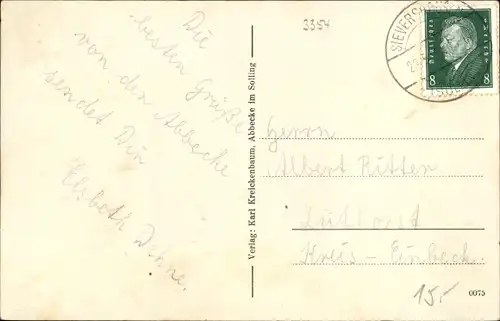 Die
besten Grüße
von der Abbecke
sendet Dir
Elsbeth Dehne.
3354
Verlag: Karl Kreickenbaum, Abbecke im Solling
SIEVERSHAUSEN
Deutsches Reich
8 8
Herrn
Albert Ritter
Lüthorst
Kreis-Einbeck.
0075
15,-